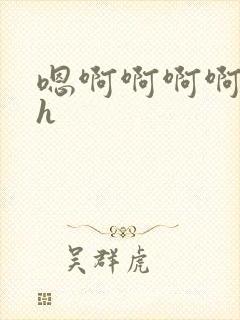 嗯啊啊啊啊
h
吴群虎